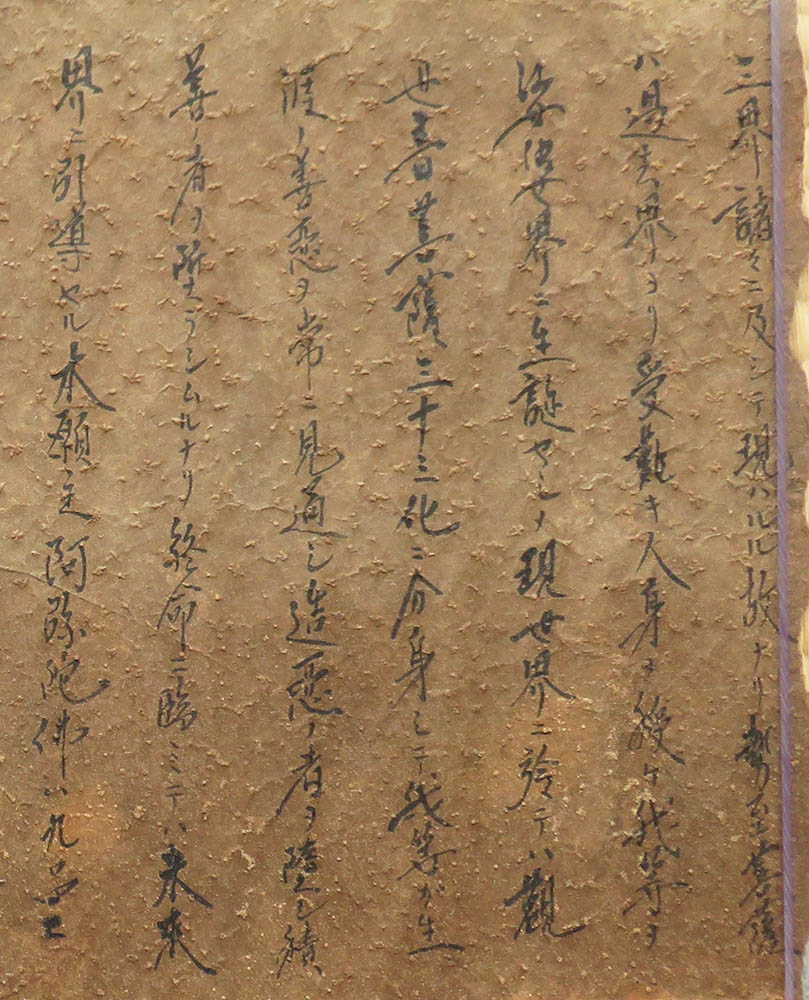 三界諸々ニ及シテ現ハルル故ナリ勢至菩薩
ハ過去界ヨリ受難キ人身ヲ授ケ我等ヲ
娑婆世界ニ生誕セシメ現世界ニ於テハ觀
世音菩薩三十三化ニ分身シテ我等ガ生
涯ノ善悪ヲ常ニ見通シ造悪ノ者ヲ墮シ積
善ノ者ヲ墮ラシムルナリ終命ニ臨ミテハ未來
界ニ引導セル本願主阿弥陀佛ハ九品